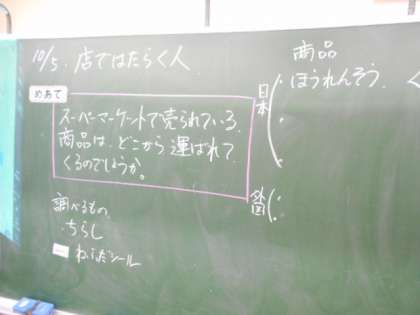 10/5. 店ではたらく人
めあて
スーパーマーケットで売られている
商品は、どこから運ばれて
くるのでしょうか。
調べるもの
・ちらし
・ねふだシール
商品
日本
・ほうれんそう
外国